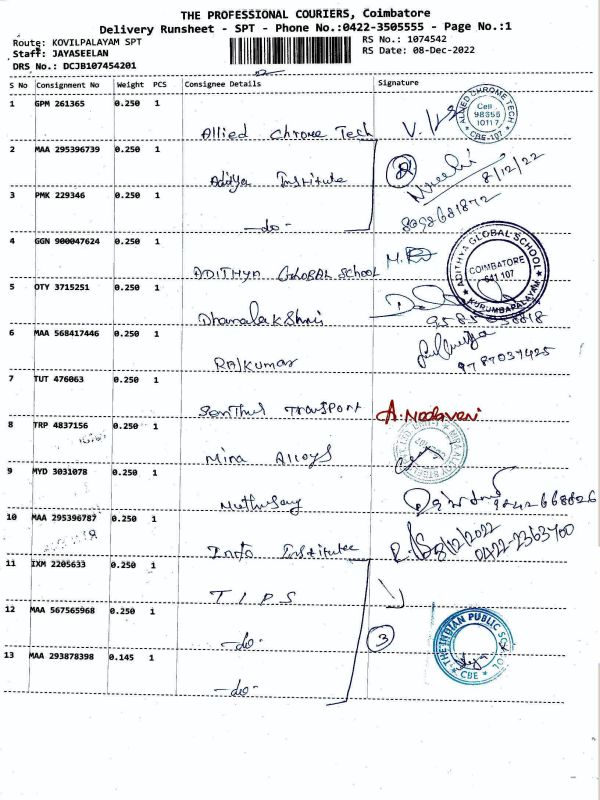 THE PROFESSIONAL COURIERS, Coimbatore
Delivery Runsheet - SPT - Phone No.:0422-3505555 - Page No.:1
Route: KOVILPALAYAM SPT
Staff: JAYASEELAN
DRS No.: DCJB107454201
RS No.: 1074542
RS Date: 08-Dec-2022
S No Consignment No Weight PCS Consignee Details Signature
1 GPM 261365 0.250 1 Allied Chrome Tech
ALLIED CHROME TECH Cell 98656 10117 CBE-107
2 MAA 295396739 0.250 1 Aditya Institute
8/12/22
3 PMK 229346 0.250 1 -do-
8098681872
4 GGN 900047624 0.250 1 ADITHYA GLOBAL SCHOOL
ADITHYA GLOBAL SCHOOL COIMBATORE 641 107 KURUMBAPALAYAM
5 OTY 3715251 0.250 1 Dhanalakshmi
6 MAA 568417446 0.250 1 Rajkumar
9787037425
7 TUT 476063 0.250 1 Senthul Transport
8 TRP 4837156 0.250 1 Mira Alloys
9 MYD 3031078 0.250 1 Muthusamy
10 MAA 295396787 0.250 1 Info Institute
8/12/2022
0422-2363700
11 IXM 2205633 0.250 1 T I P S
12 MAA 567565968 0.250 1 -do-
3
THE INDIAN PUBLIC SCHOOL CBE
13 MAA 293878398 0.145 1 -do-